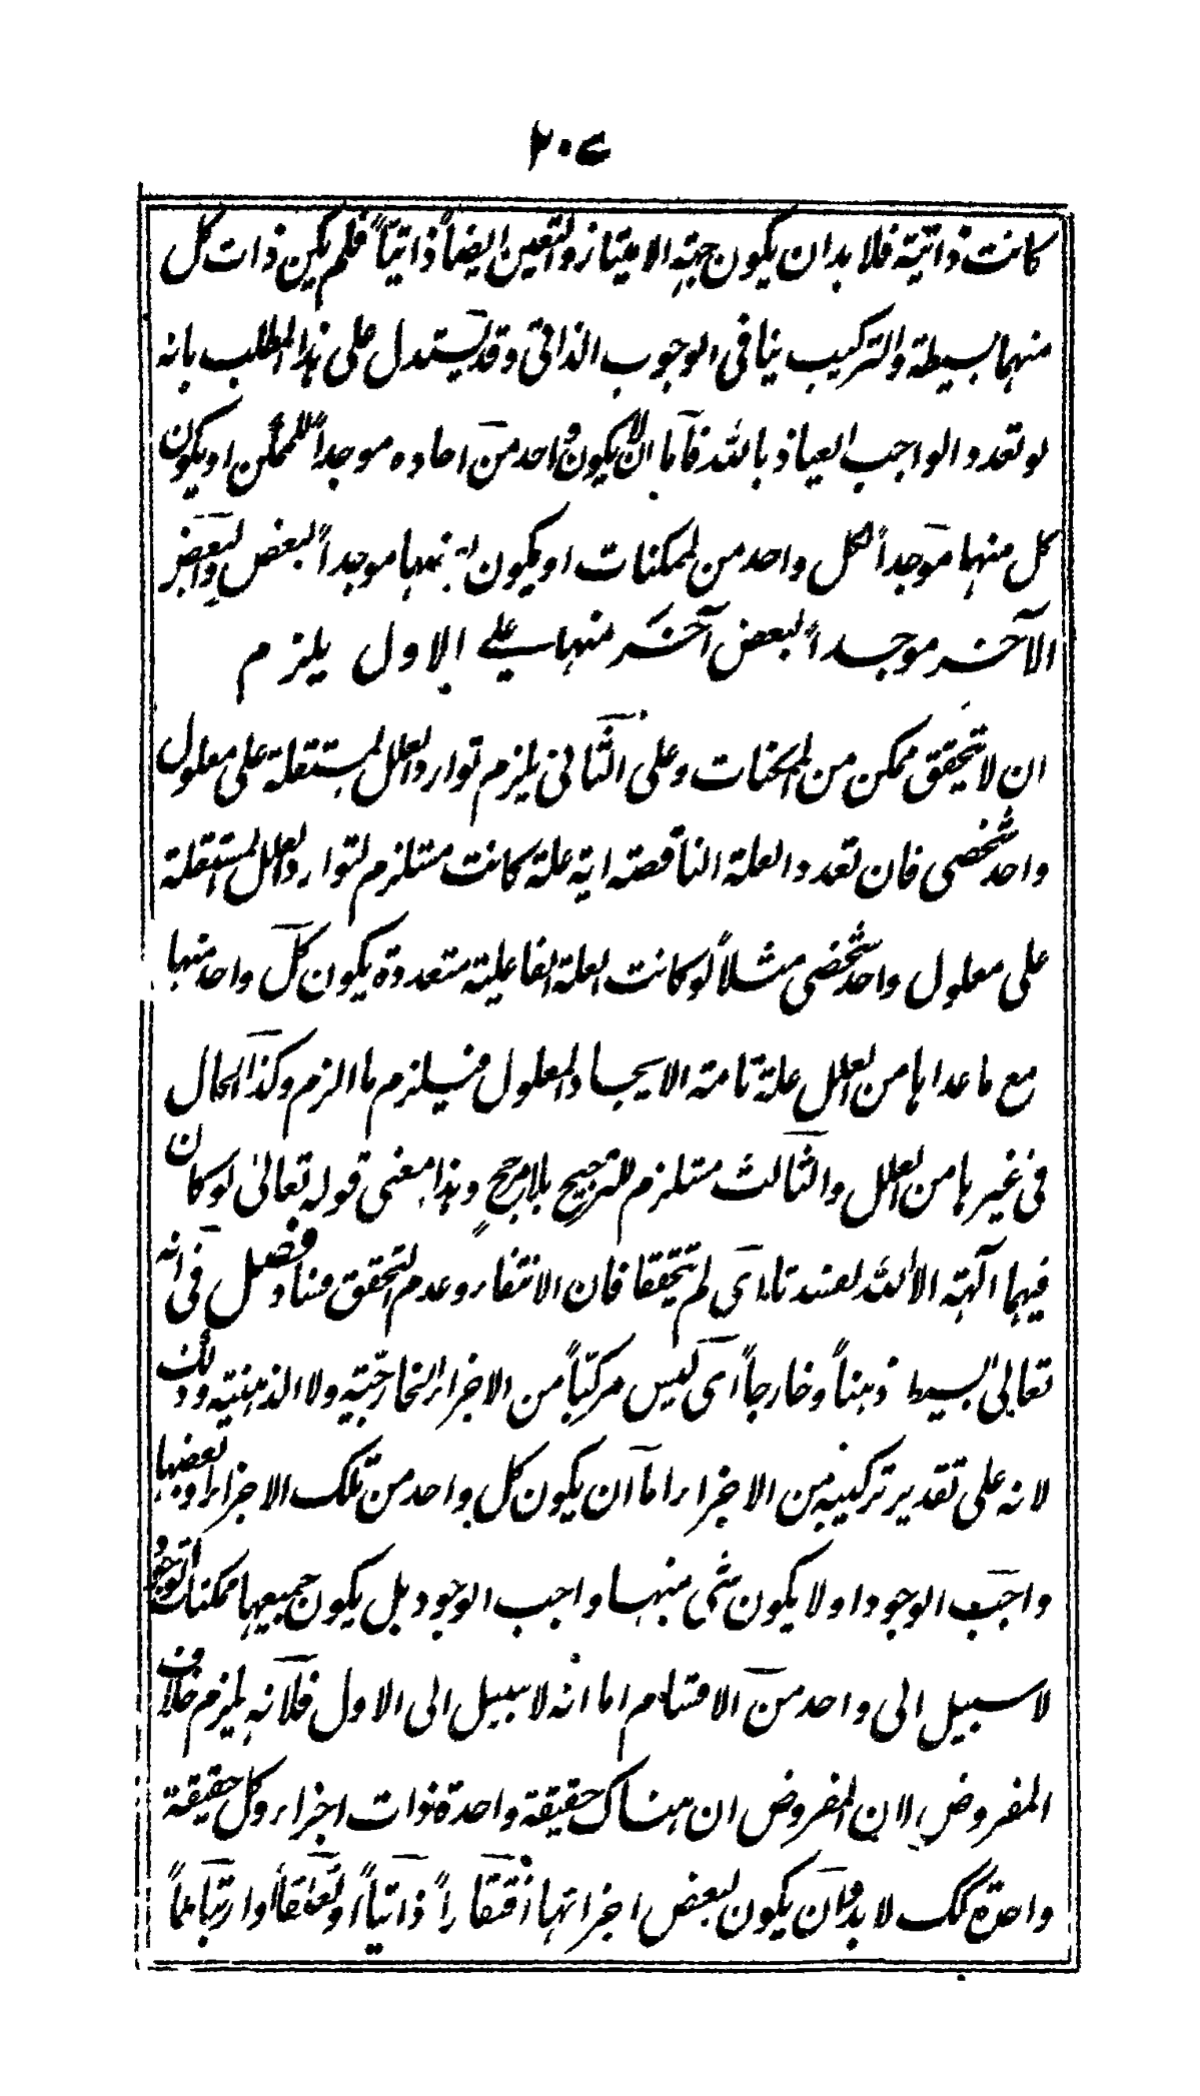 ٢٠٧
كانت ذاتية فلا بد ان يكون جهة الامتياز والتعين ايضاً ذاتياً فلم يكن ذات كل
منهما بسيطة والتركيب ينافى الوجوب الذاتى وقد يستدل على هذا المطلب بانه
لو تعدد الواجب العياذ بالله فآما ان لا يكون واحد من احاده موجداً للممكن او يكون
كل منهما موجداً لكل واحد من الممكنات او يكون منهما موجداً لبعض والبعض
الآخر موجداً لبعض آخر منها على الاول يلزم
ان لا يتحقق ممكن من الممكنات وعلى الثانى يلزم توارد العلل المستقلة على معلول
واحد شخصى فان تعدد العلة الناقصة اية علة كانت مستلزم لتوارد العلل المستقلة
على معلول واحد شخصى مثلاً لو كانت العلة الفاعلية متعددة يكون كل واحد منها
مع ما عداها من العلل علة تامة لايجاد المعلول فيلزم ما الزم وكذا الحال
فى غيرها من العلل والثالث مستلزم للترجيح بلا مرجح وهذا معنى قوله تعالى لو كان
فيهما آلهة الا الله لفسدتا اى لم يتحققا فان الانتفاء وعدم التحقق فساد فصل فى انه
تعالى بسيط ذهناً وخارجاً اى ليس مركباً من الاجزاء الخارجية ولا الذهنية وذلك
لانه على تقدير تركيبه من الاجزاء اما ان يكون كل واحد من تلك الاجزاء او بعضها
واجب الوجود او لا يكون شئ منها واجب الوجود بل يكون جميعها ممكنات الوجود
لا سبيل الى واحد من الاقسام اما انه لا سبيل الى الاول فلانه يلزم خلاف
المفروض لان المفروض ان هناك حقيقة واحدة ذات اجزاء وكل حقيقة
واحدة كك لا بد وان يكون لبعض اجزائها افتقاراً ذاتياً او تعلقاً وارتباطاً